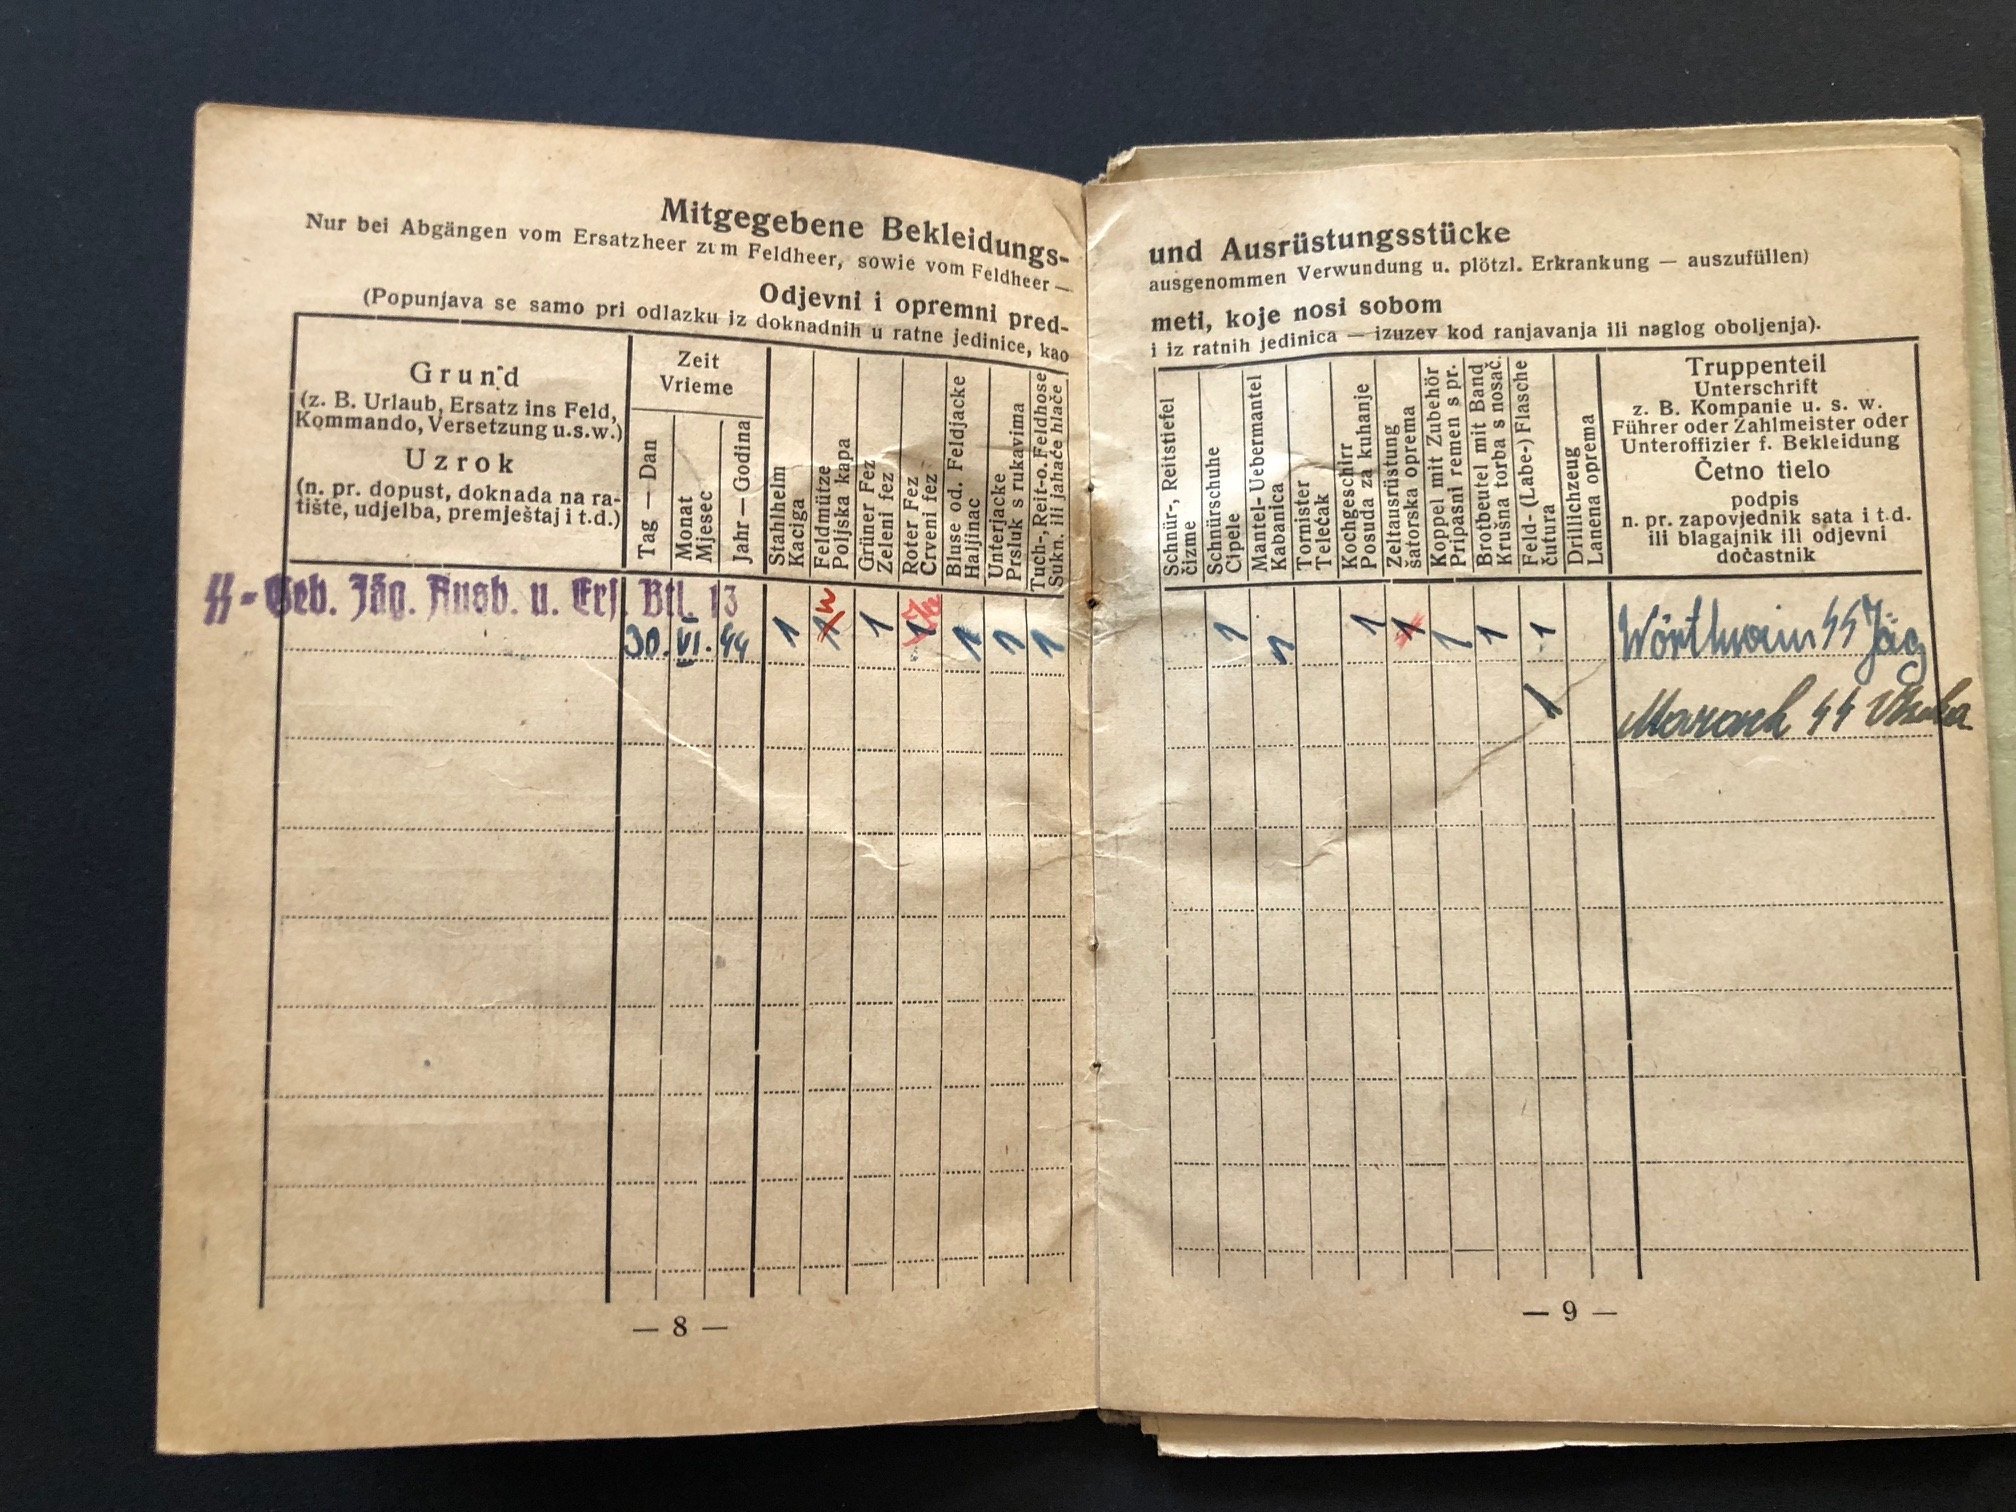 Mitgegebene Bekleidungs-
Nur bei Abgängen vom Ersatzheer zum Feldheer, sowie vom Feldheer —
Odjevni i opremni pred-
(Popunjava se samo pri odlazku iz doknadnih u ratne jedinice, kao
Grund
(z. B. Urlaub, Ersatz ins Feld,
Kommando, Versetzung u.s.w.)
Uzrok
(n. pr. dopust, doknada na ra-
tište, udjelba, premještaj i t.d.)
Zeit
Vrieme
Tag — Dan
Monat
Mjesec
Jahr — Godina
Stahlhelm
Kaciga
Feldmütze
Poljska kapa
Grüner Fez
Zeleni fez
Roter Fez
Crveni fez
Bluse od. Feldjacke
Haljinac
Unterjacke
Prsluk s rukavima
Tuch-, Reit-o. Feldhose
Sukn. ili jahaće hlače
SS-Geb. Jäg. Ausb. u. Ers. Btl. 13
30. VI. 44 1 1 1 1 1 1 1
— 8 —
und Ausrüstungsstücke
ausgenommen Verwundung u. plötzl. Erkrankung — auszufüllen)
meti, koje nosi sobom
i iz ratnih jedinica — izuzev kod ranjavanja ili naglog oboljenja).
Schnür-, Reitstiefel
čizme
Schnürschuhe
Cipele
Mantel- Uebermantel
Kabanica
Tornister
Telećak
Kochgeschirr
Posuda za kuhanje
Zeltausrüstung
šatorska oprema
Koppel mit Zubehör
Pripasni remen s pr.
Brotbeutel mit Band
Krušna torba s nosač.
Feld- (Labe-) Flasche
čutura
Drillichzeug
Lanena oprema
Truppenteil
Unterschrift
z. B. Kompanie u. s. w.
Führer oder Zahlmeister oder
Unteroffizier f. Bekleidung
Četno tielo
podpis
n. pr. zapovjednik sata i t.d.
ili blagajnik ili odjevni
dočastnik
1 1 1 1 1 1 1 SS Jäg
1 SS
— 9 —